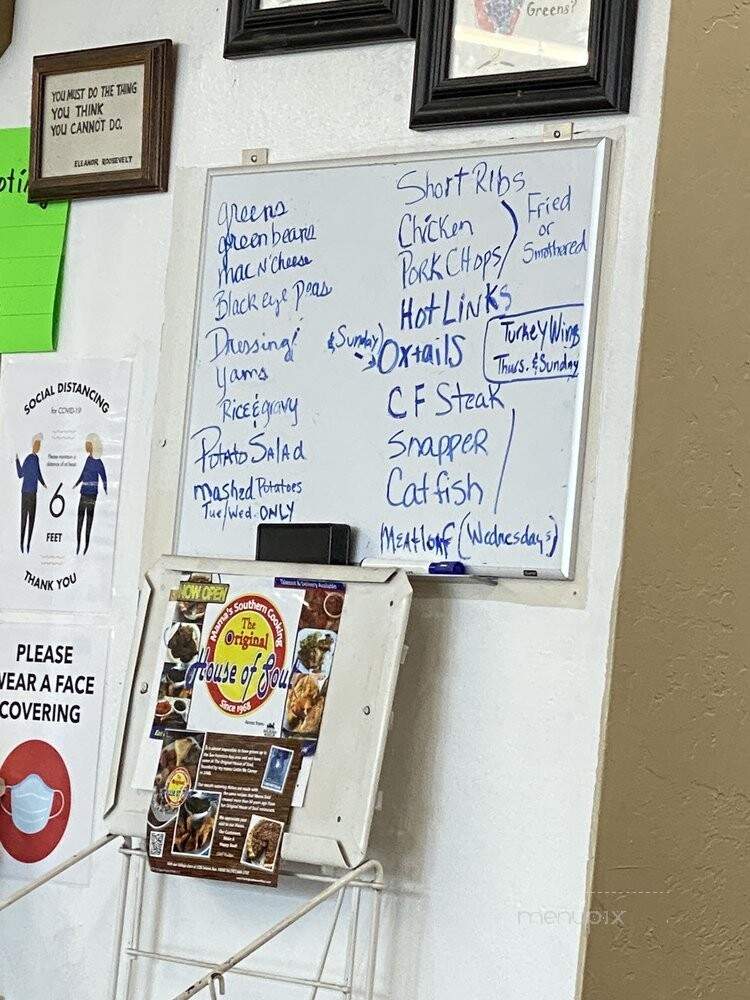 Greens?
YOU MUST DO THE THING
YOU THINK
YOU CANNOT DO.
ELEANOR ROOSEVELT
greens
greenbeans
mac N' cheese
Black eye Peas
Dressing!
Yams
Rice & gravy
Potato Salad
mashed Potatoes
Tue/Wed. ONLY
Short Ribs
Chicken
PORK CHOPS
Fried
or
Smothered
HOT LINKS
& Sunday
Oxtails
Turkey Wings
Thurs. & Sunday
CF Steak
Snapper
Catfish
MEATloaf (Wednesdays)
SOCIAL DISTANCING
for COVID-19
Please maintain a
distance of at least
6
FEET
THANK YOU
PLEASE
WEAR A FACE
COVERING
NOW OPEN
Mama's Southern Cooking
The
Original
House of Soul
Since 1968
menupix